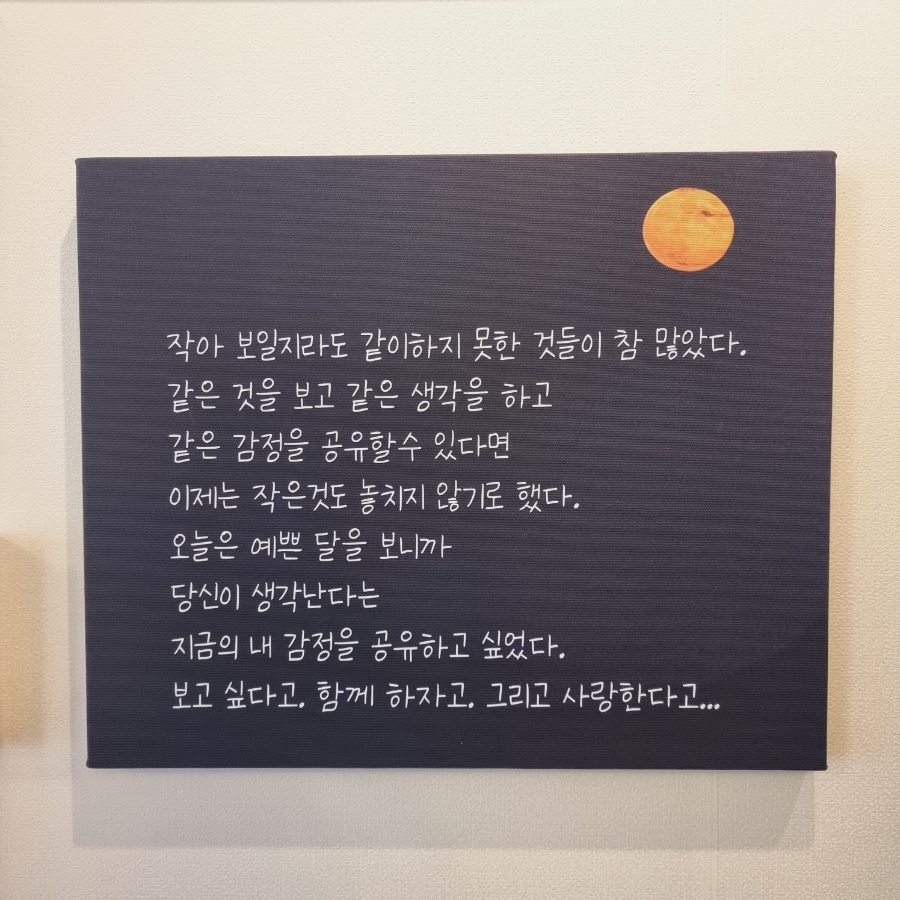 작아 보일지라도 같이하지 못한 것들이 참 많았다.
같은 것을 보고 같은 생각을 하고
같은 감정을 공유할수 있다면
이제는 작은것도 놓치지 않기로 했다.
오늘은 예쁜 달을 보니까
당신이 생각난다는
지금의 내 감정을 공유하고 싶었다.
보고 싶다고. 함께 하자고. 그리고 사랑한다고...